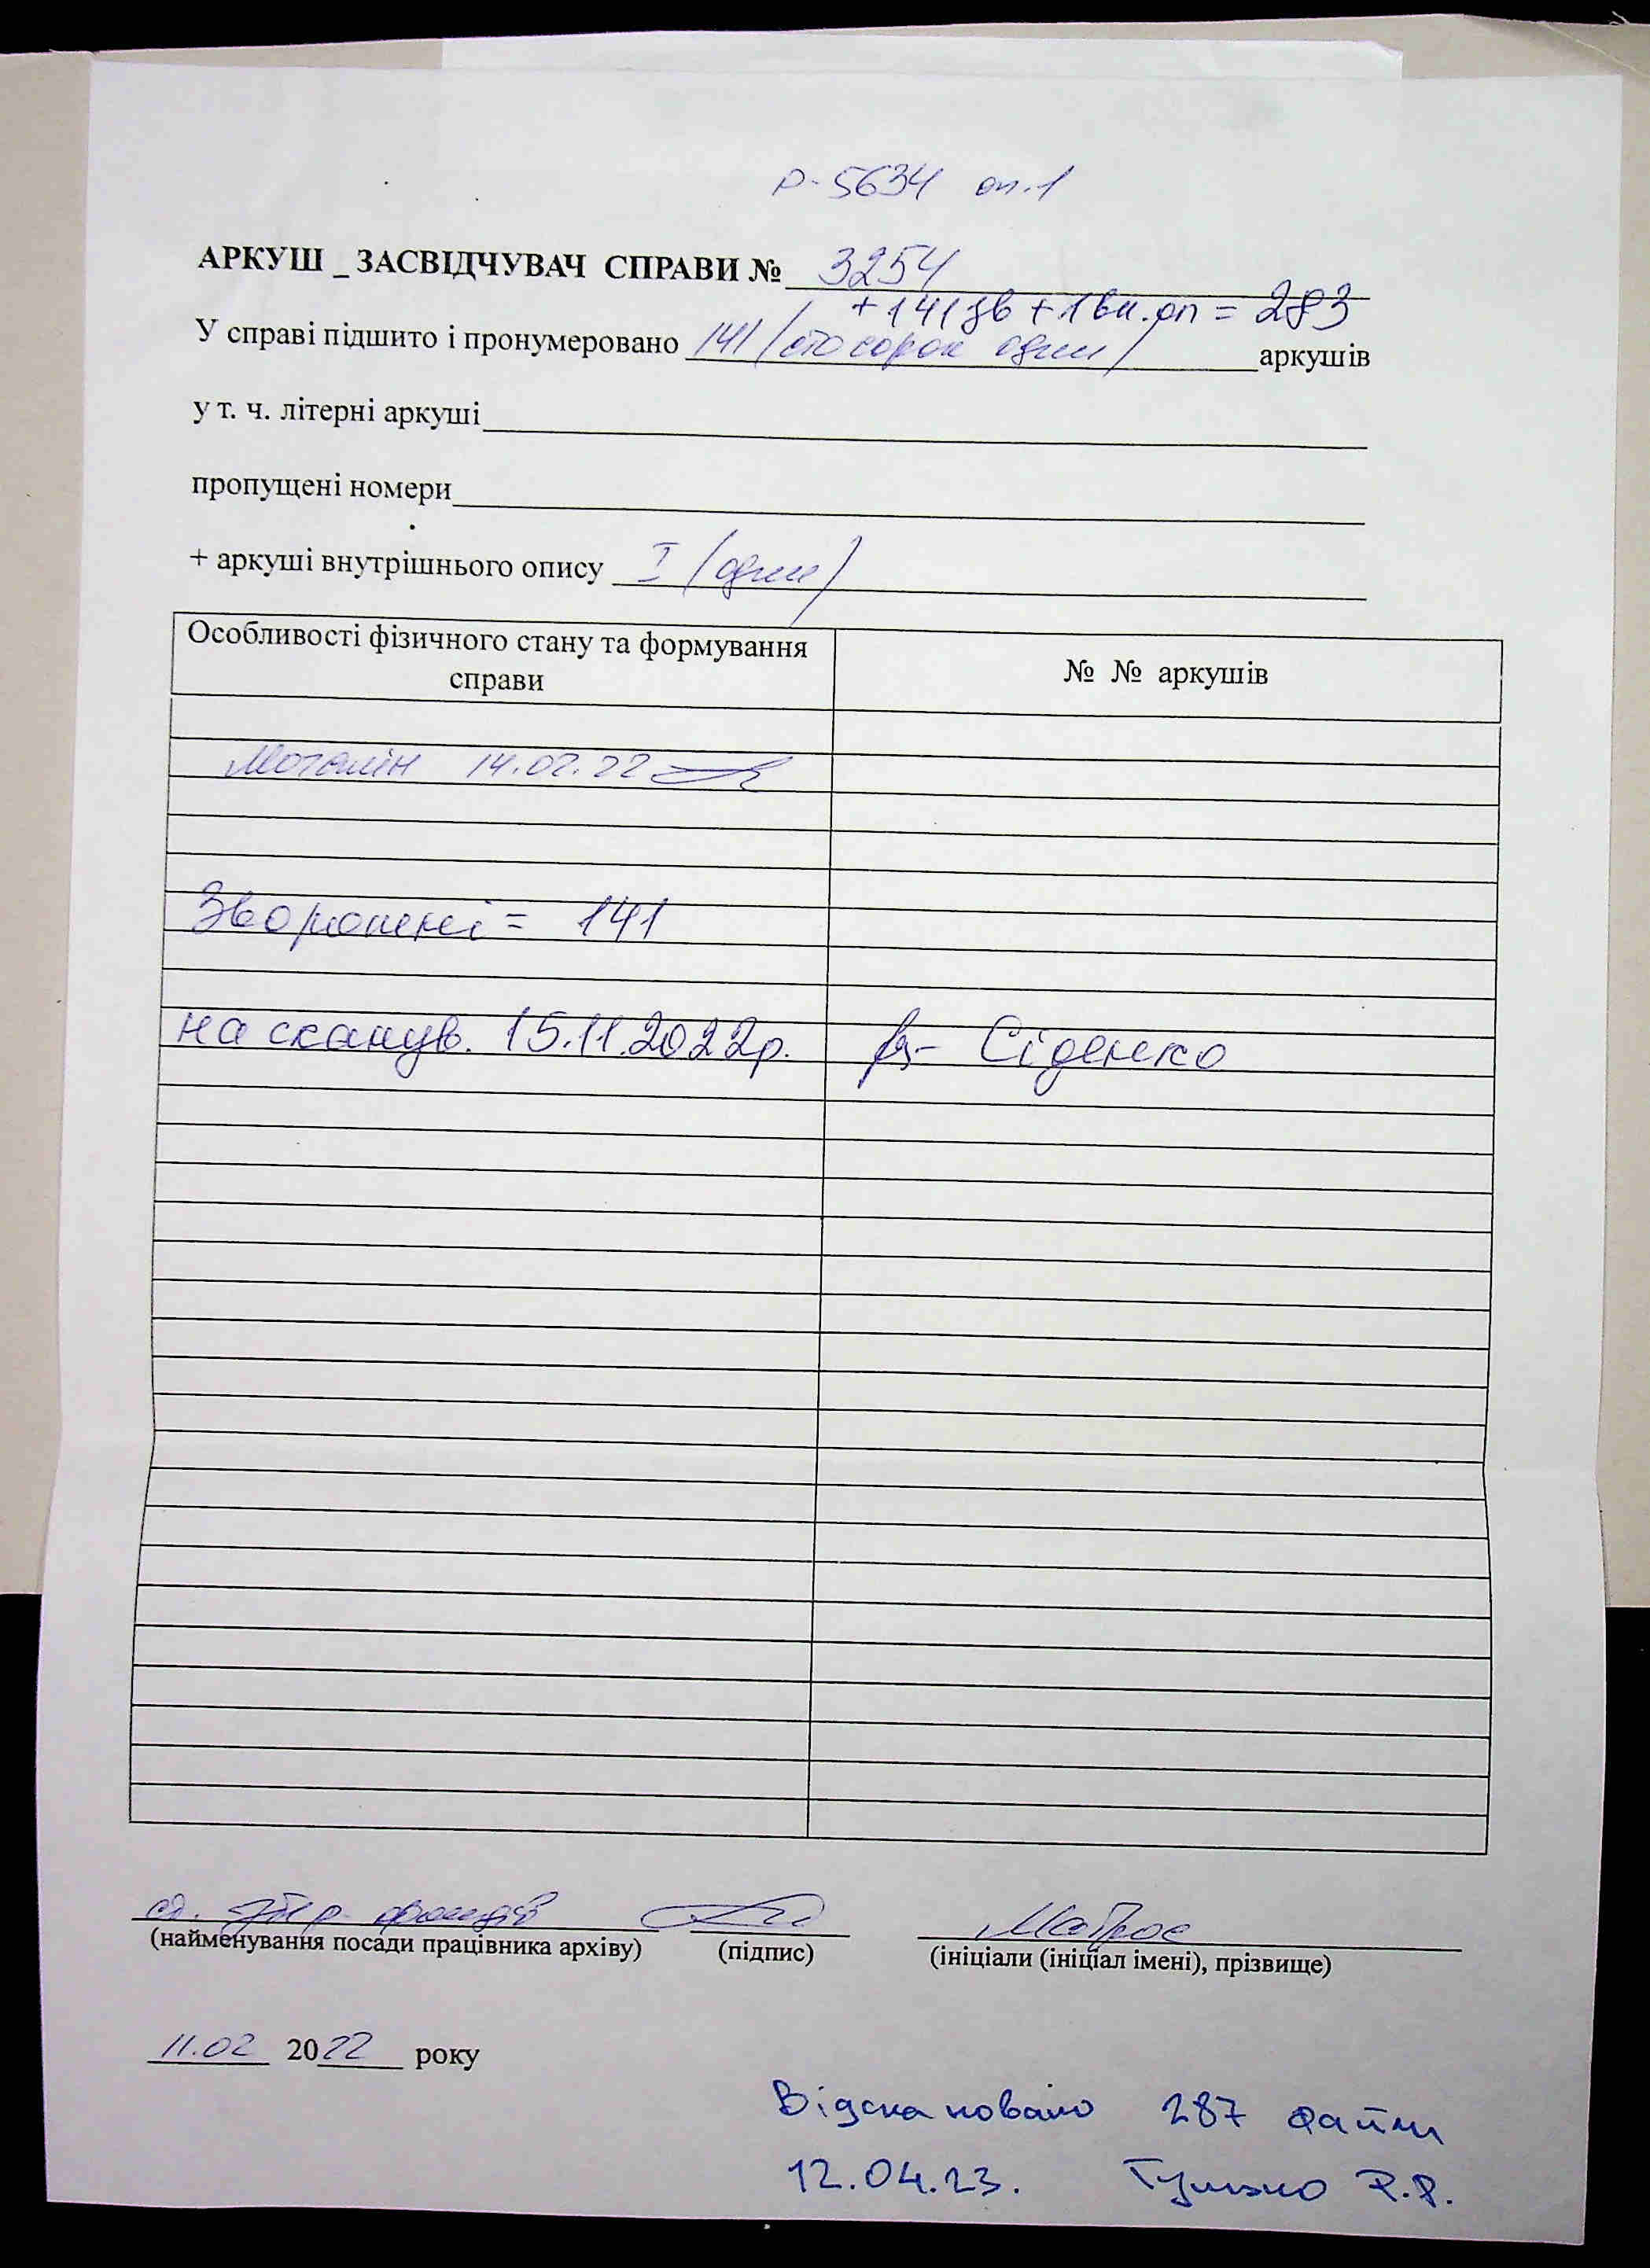 Р-5634 оп.1
АРКУШ _ ЗАСВІДЧУВАЧ СПРАВИ № 3254
+141зв + 1вн.оп = 283
У справі підшито і пронумеровано 141 /сто сорок один/ аркушів
у т. ч. літерні аркуші
пропущені номери
+ аркуші внутрішнього опису I /один/
Особливості фізичного стану та формування справи
№ № аркушів
14.02.22
Зворотені = 141
на сканув. 15.11.2022р. Сіденко
ст. фондів Матрос
(найменування посади працівника архіву) (підпис) (ініціали (ініціал імені), прізвище)
11.02 2022 року
Відскановано 287 файли
12.04.23. Р.Р.